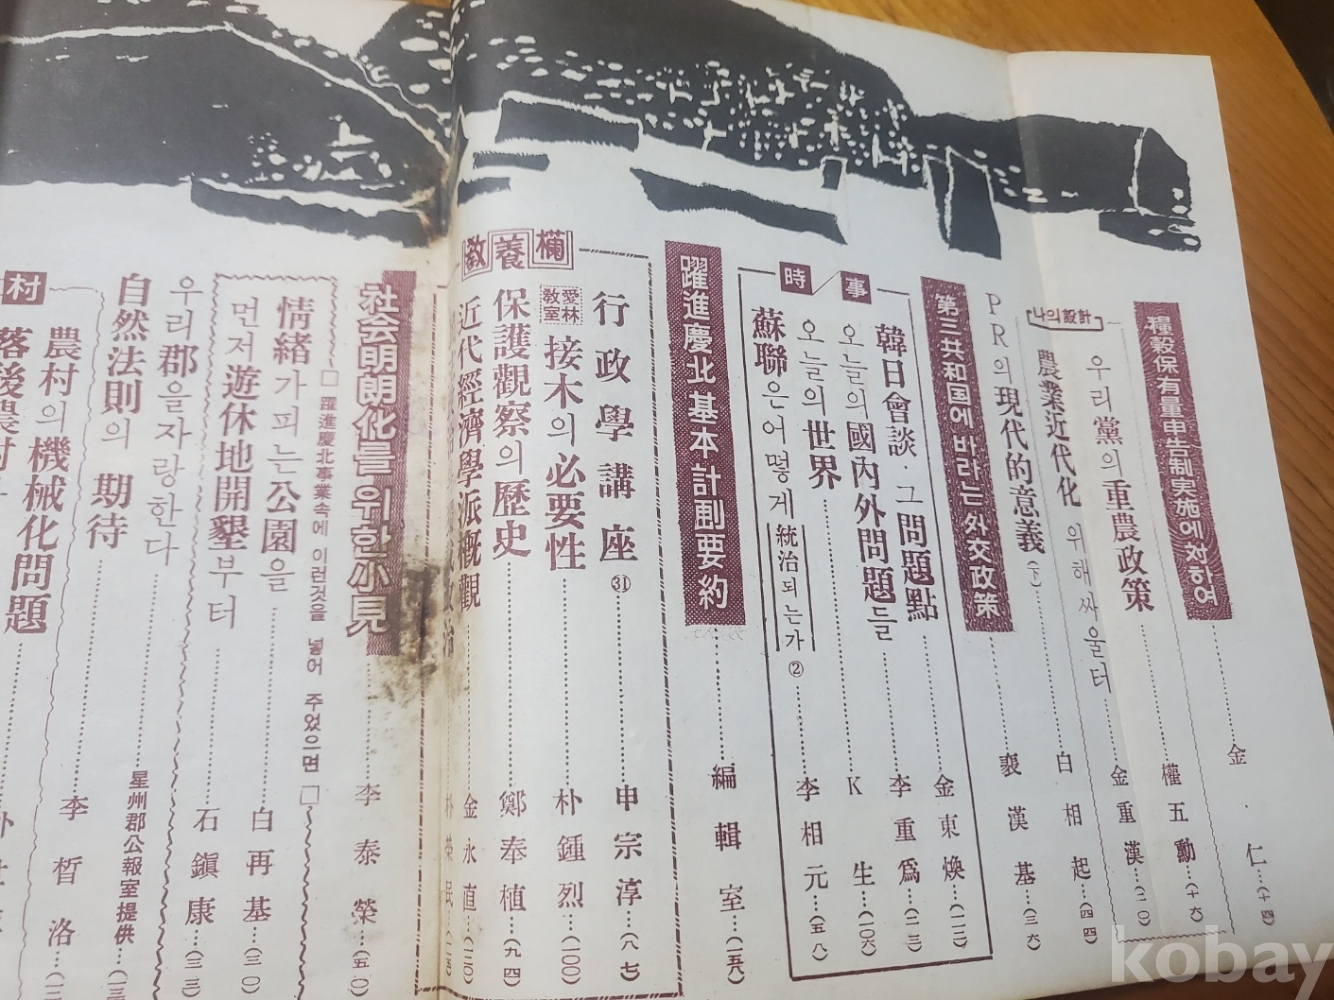 金·仁…(十四)
糧穀保有量申告制実施에対하여
權五勳…(十六)
우리黨의重農政策
金重漢…(二〇)
나의設計
農業近代化 위해싸울터
白相起…(四四)
PR의現代的意義(下)
裵漢基…(三六)
第三共和国에바라는外交政策
金東煥…(一一二)
時事
韓日會談·그問題點
李重爲…(一二三)
오늘의國內外問題들
K生…(一〇六)
오늘의世界
蘇聯은어떻게統治되는가②
李相元…(五八)
躍進慶北基本計劃要約
編輯室…(一五八)
教養欄
行政學講座㉛
申宗淳…(八七)
愛林教室
接木의必要性
朴鍾烈…(一〇〇)
保護觀察의歷史
鄭奉植…(九四)
近代經濟學派槪觀
金永直…(一二〇)
朴榮民
社会明朗化를위한小見
李泰榮…(五〇)
□躍進慶北事業속에 이런것을 넣어 주었으면□
情緖가피는公園을
白再基…(三〇)
먼저遊休地開墾부터
石鎭康…(三三)
우리郡을자랑한다
星州郡公報室提供
自然法則의 期待
李晳洛
村
農村의機械化問題
落後農村
kobay